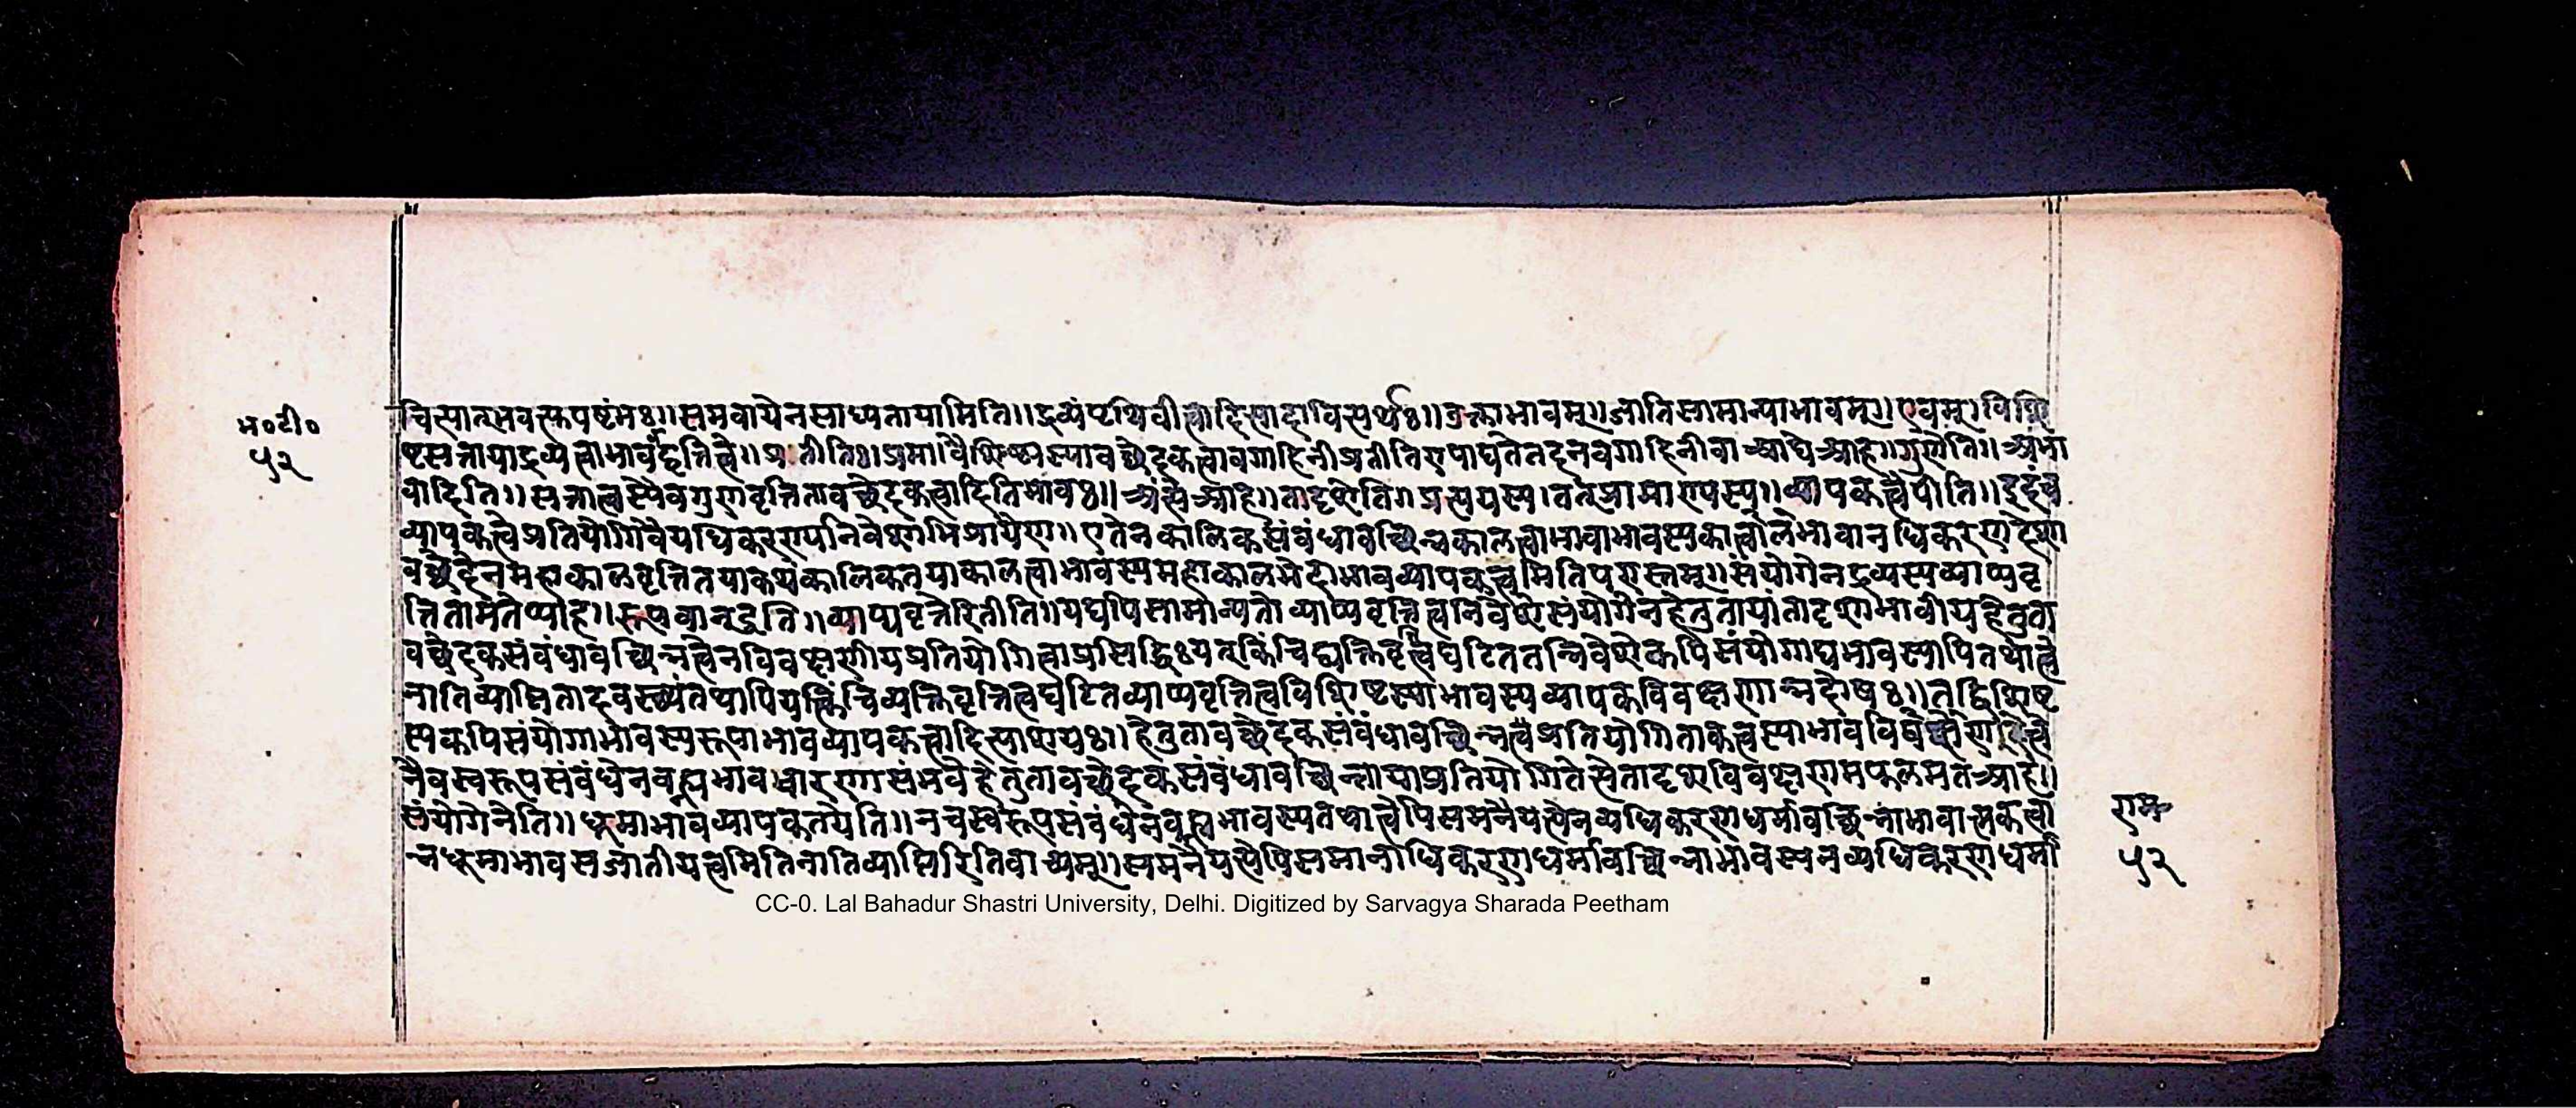 त्रित्यात्मवत्स्तपष्टंमः॥समवायेनसाध्यतायामिति॥द्रव्यंपृथिवीत्वादित्यादावित्यर्थः॥उक्ताभावम्॥जातिसामान्याभावम्॥एवम्॥विशि
भ॰टी॰
५२
ष्टसत्तायाद्रव्यत्वाभाववद्वृत्तित्वे॥प्रतीतिः॥प्रमा॥वैशिष्ट्यस्यावच्छेदकत्वावगाहिनीप्रतीतिरुपाद्यतेतदनवगाहिनीवाआद्येआह॥गुणेति॥अंभा
वादिति॥सत्तात्वस्यैवगुणवृत्तितावच्छेदकत्वादितिभावः॥अंत्येआह॥तादृशेति॥प्रत्ययस्य॥वर्तप्रामाण्यस्य॥व्यापकत्वेपीति॥इदंच
व्यापकत्वेप्रतियोगिवैयधिकरण्यनिवेशाभिप्रायेण॥एतेनकालिकसंबंधावच्छिन्नकालत्वाभावाभावस्यकालत्वाभावानधिकरणदेशा
वच्छेदेनमहाकालवृत्तितयाकथंकालिकतयाकालत्वाभावस्यमहाकालभेदाभावव्यापकत्वमितिपरास्तम्॥संयोगेनद्रव्यस्यव्याप्यवृ
त्तितामतेप्याह॥रूपवानद्वेति॥व्याप्यवृत्तेरितीति॥यद्यपिसामान्यतोव्याप्यवृत्तित्वनिवेशेसंयोगेनहेतुतायांतादृशाभावीयहेतुता
वच्छेदकसंबंधावच्छिन्नत्वेनविवक्षणीयप्रतियोगित्वाप्रसिद्धिःयत्किंचिद्व्यक्तिवृत्तित्वघटिततन्निवेशेकपिसंयोगाद्यभावस्यापितथात्वे
नातिव्याप्तितादवस्थ्यंतथापियत्किंचिव्यक्तिवृत्तित्वघटितव्याप्यवृत्तित्वविशिष्टस्याभावस्यव्यापकेविवक्षणान्नदोषः॥तद्विशिष्ट
स्यकपिसंयोगाभावस्यरूपाभावव्यापकत्वादित्याशयः॥हेतुतावच्छेदकसंबंधावच्छिन्नत्वंप्रतियोगिताकत्वस्याभावविवक्षणादित्वे
नैवस्वरूपसंबंधेनवह्न्यभावधारणासंभवेहेतुतावच्छेदकसंबंधावच्छिन्नायाप्रतियोगितेत्येतादृशविवक्षणमफलमतआह॥
संयोगेनेति॥धूमाभावव्यापकतयेति॥नचस्वरूपसंबंधेनवह्न्यभावस्यतथात्वेपिसमनैयत्येनव्यधिकरणधर्मावच्छिन्नाभावात्मकत्वा
न्नधूमाभावसजातीयत्वमितिनातिव्याप्तिरितिवाच्यम्॥समनैयत्येपिसमानाधिकरणधर्मावच्छिन्नाभावस्यनव्यधिकरणधर्मा
राम
५२
CC-0. Lal Bahadur Shastri University, Delhi. Digitized by Sarvagya Sharada Peetham